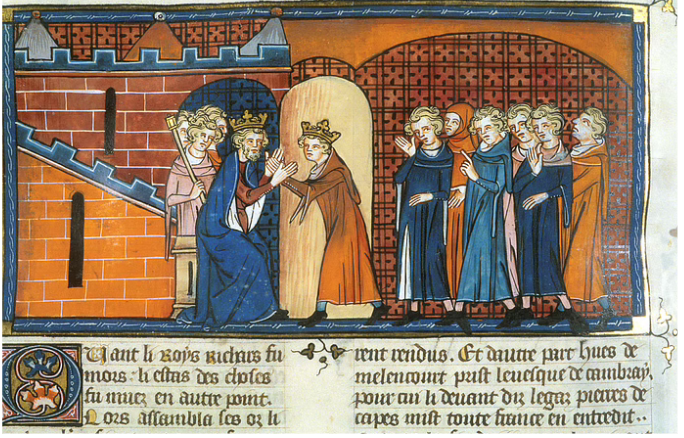 Quant li Roys Richars fu
mors. li estas des choses
fu muez en autre point.
Lors assambla ses oz li
rent rendus. Et dautre part hues de
melencourt prist levesque de cambray.
pour cui li devant diz legaz pierres de
capes mist toute france en entredit.